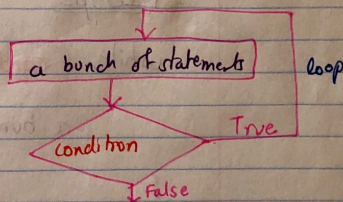 a bunch of statements
loop
True
condition
False